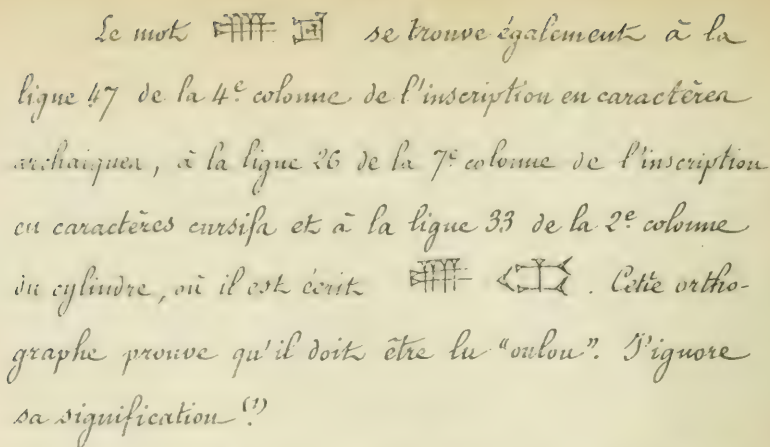 Le mot se trouve également à la
ligne 47 de la 4e colonne de l'inscription en caractères
archaiques, à la ligne 26 de la 7e colonne de l'inscription
en caractères cursifs et à la ligne 33 de la 2e colonne
du cylindre, où il est écrit . Cette ortho-
graphe prouve qu'il doit être lu "oulou". J'ignore
sa signification (1).